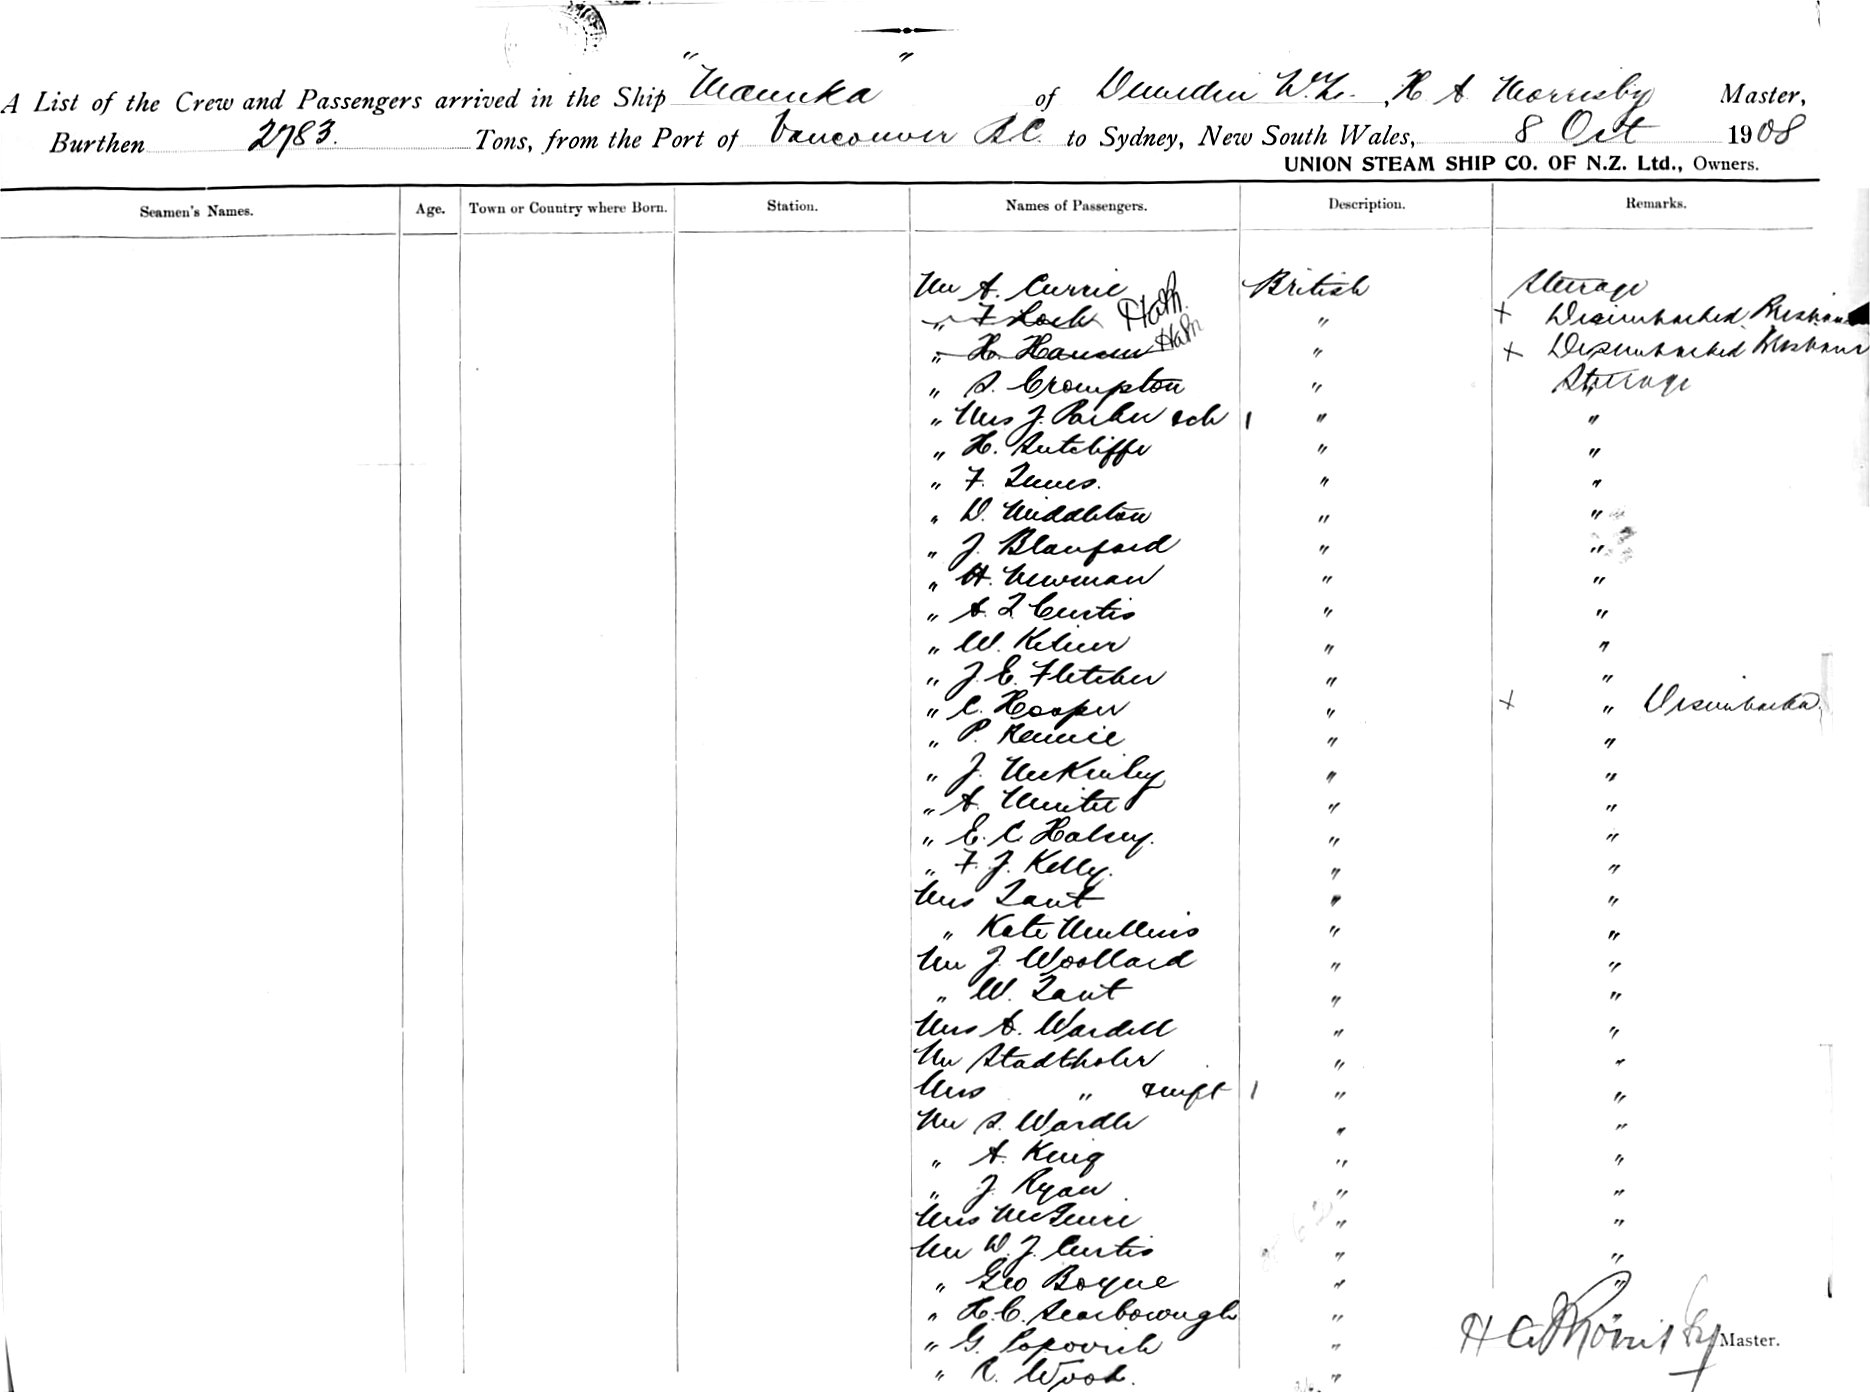 A List of the Crew and Passengers arrived in the Ship "Manuka" of Dunedin N.Z., H A Morrisby Master,
Burthen 2783. Tons, from the Port of Vancouver B.C. to Sydney, New South Wales, 8 Oct 1908
UNION STEAM SHIP CO. OF N.Z. Ltd., Owners.
Seamen's Names. Age. Town or Country where Born. Station. Names of Passengers. Description. Remarks.
Mr A. Currie British Steerage
" F Lock HAM. " + Disembarked Brisbane
" H. Hansen HAM " + Disembarked Brisbane
" S. Crompton " Steerage
" Mrs J. Parker &ch 1 " "
" H. Sutcliffe " "
" F. " "
" D. Middleton " "
" J. Blanford " "
" H. Newman " "
" A. L Curtis " "
" W. " "
" J. E. Fletcher " "
" C. Hooper " + " Disembarked
" P. Rennie " "
" J. McKinley " "
" A. " "
" E. C Halsey. " "
" F. J. Kelly. " "
Mrs Tant " "
" Kate Mullins " "
Mr J. Woollard " "
" W. Tant " "
Mrs A. Wardell " "
Mr Stadtholer " "
Mrs " & inft 1 " "
Mr S. Wardle " "
" A. King " "
" J. Ryan " "
Mrs McGuire " "
Mr W. J. Curtis " "
" Geo Boyne " "
" H. C. Scarborough "
" G. Popovich "
H A Morrisby Master.
" R. Wood. "